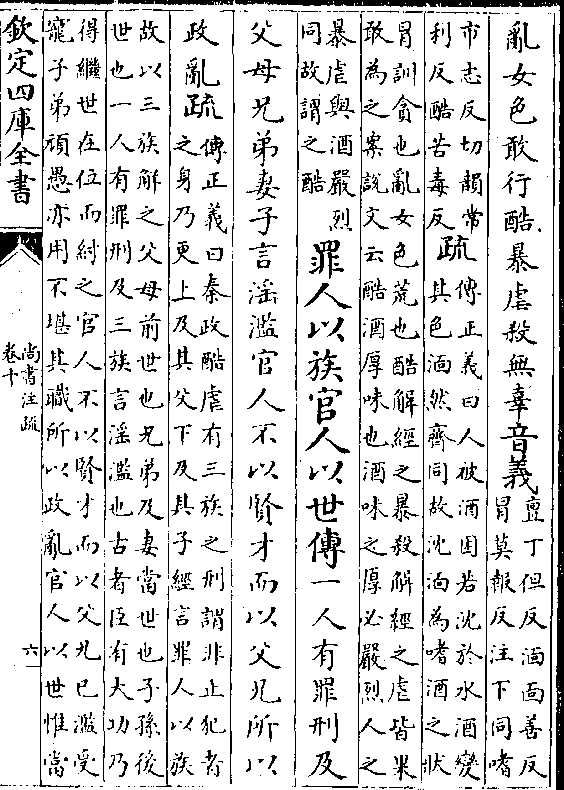 亂女色敢行酷暴虐殺無辜音義
亶丁但反湎面善反
冒莫報反注下同嗜
市志反切韻常
利反酷苦毒反
疏
傳正義曰人被酒困若沈於水酒變
其色湎然齊同故沈湎為嗜酒之狀
冒訓貪也亂女色荒也酷解經之暴殺解經之虐皆果
敢為之案說文云酷酒厚味也酒味之厚必嚴烈人之
暴虐與酒嚴烈
同故謂之酷
罪人以族官人以世傳一人有罪刑及
父母兄弟妻子言淫濫官人不以賢才而以父兄所以
政亂疏
傳正義曰秦政酷虐有三族之刑謂非止犯者
之身乃更上及其父下及其子經言罪人以族
故以三族解之父母前世也兄弟及妻當世也子孫後
世也一人有罪刑及三族言淫濫也古者臣有大功乃
得繼世在位而紂之官人不以賢才而以父兄已濫受
寵子弟頑愚亦用不堪其職所以政亂官人以世惟當
欽定四庫全書
尚書注疏
卷十
六